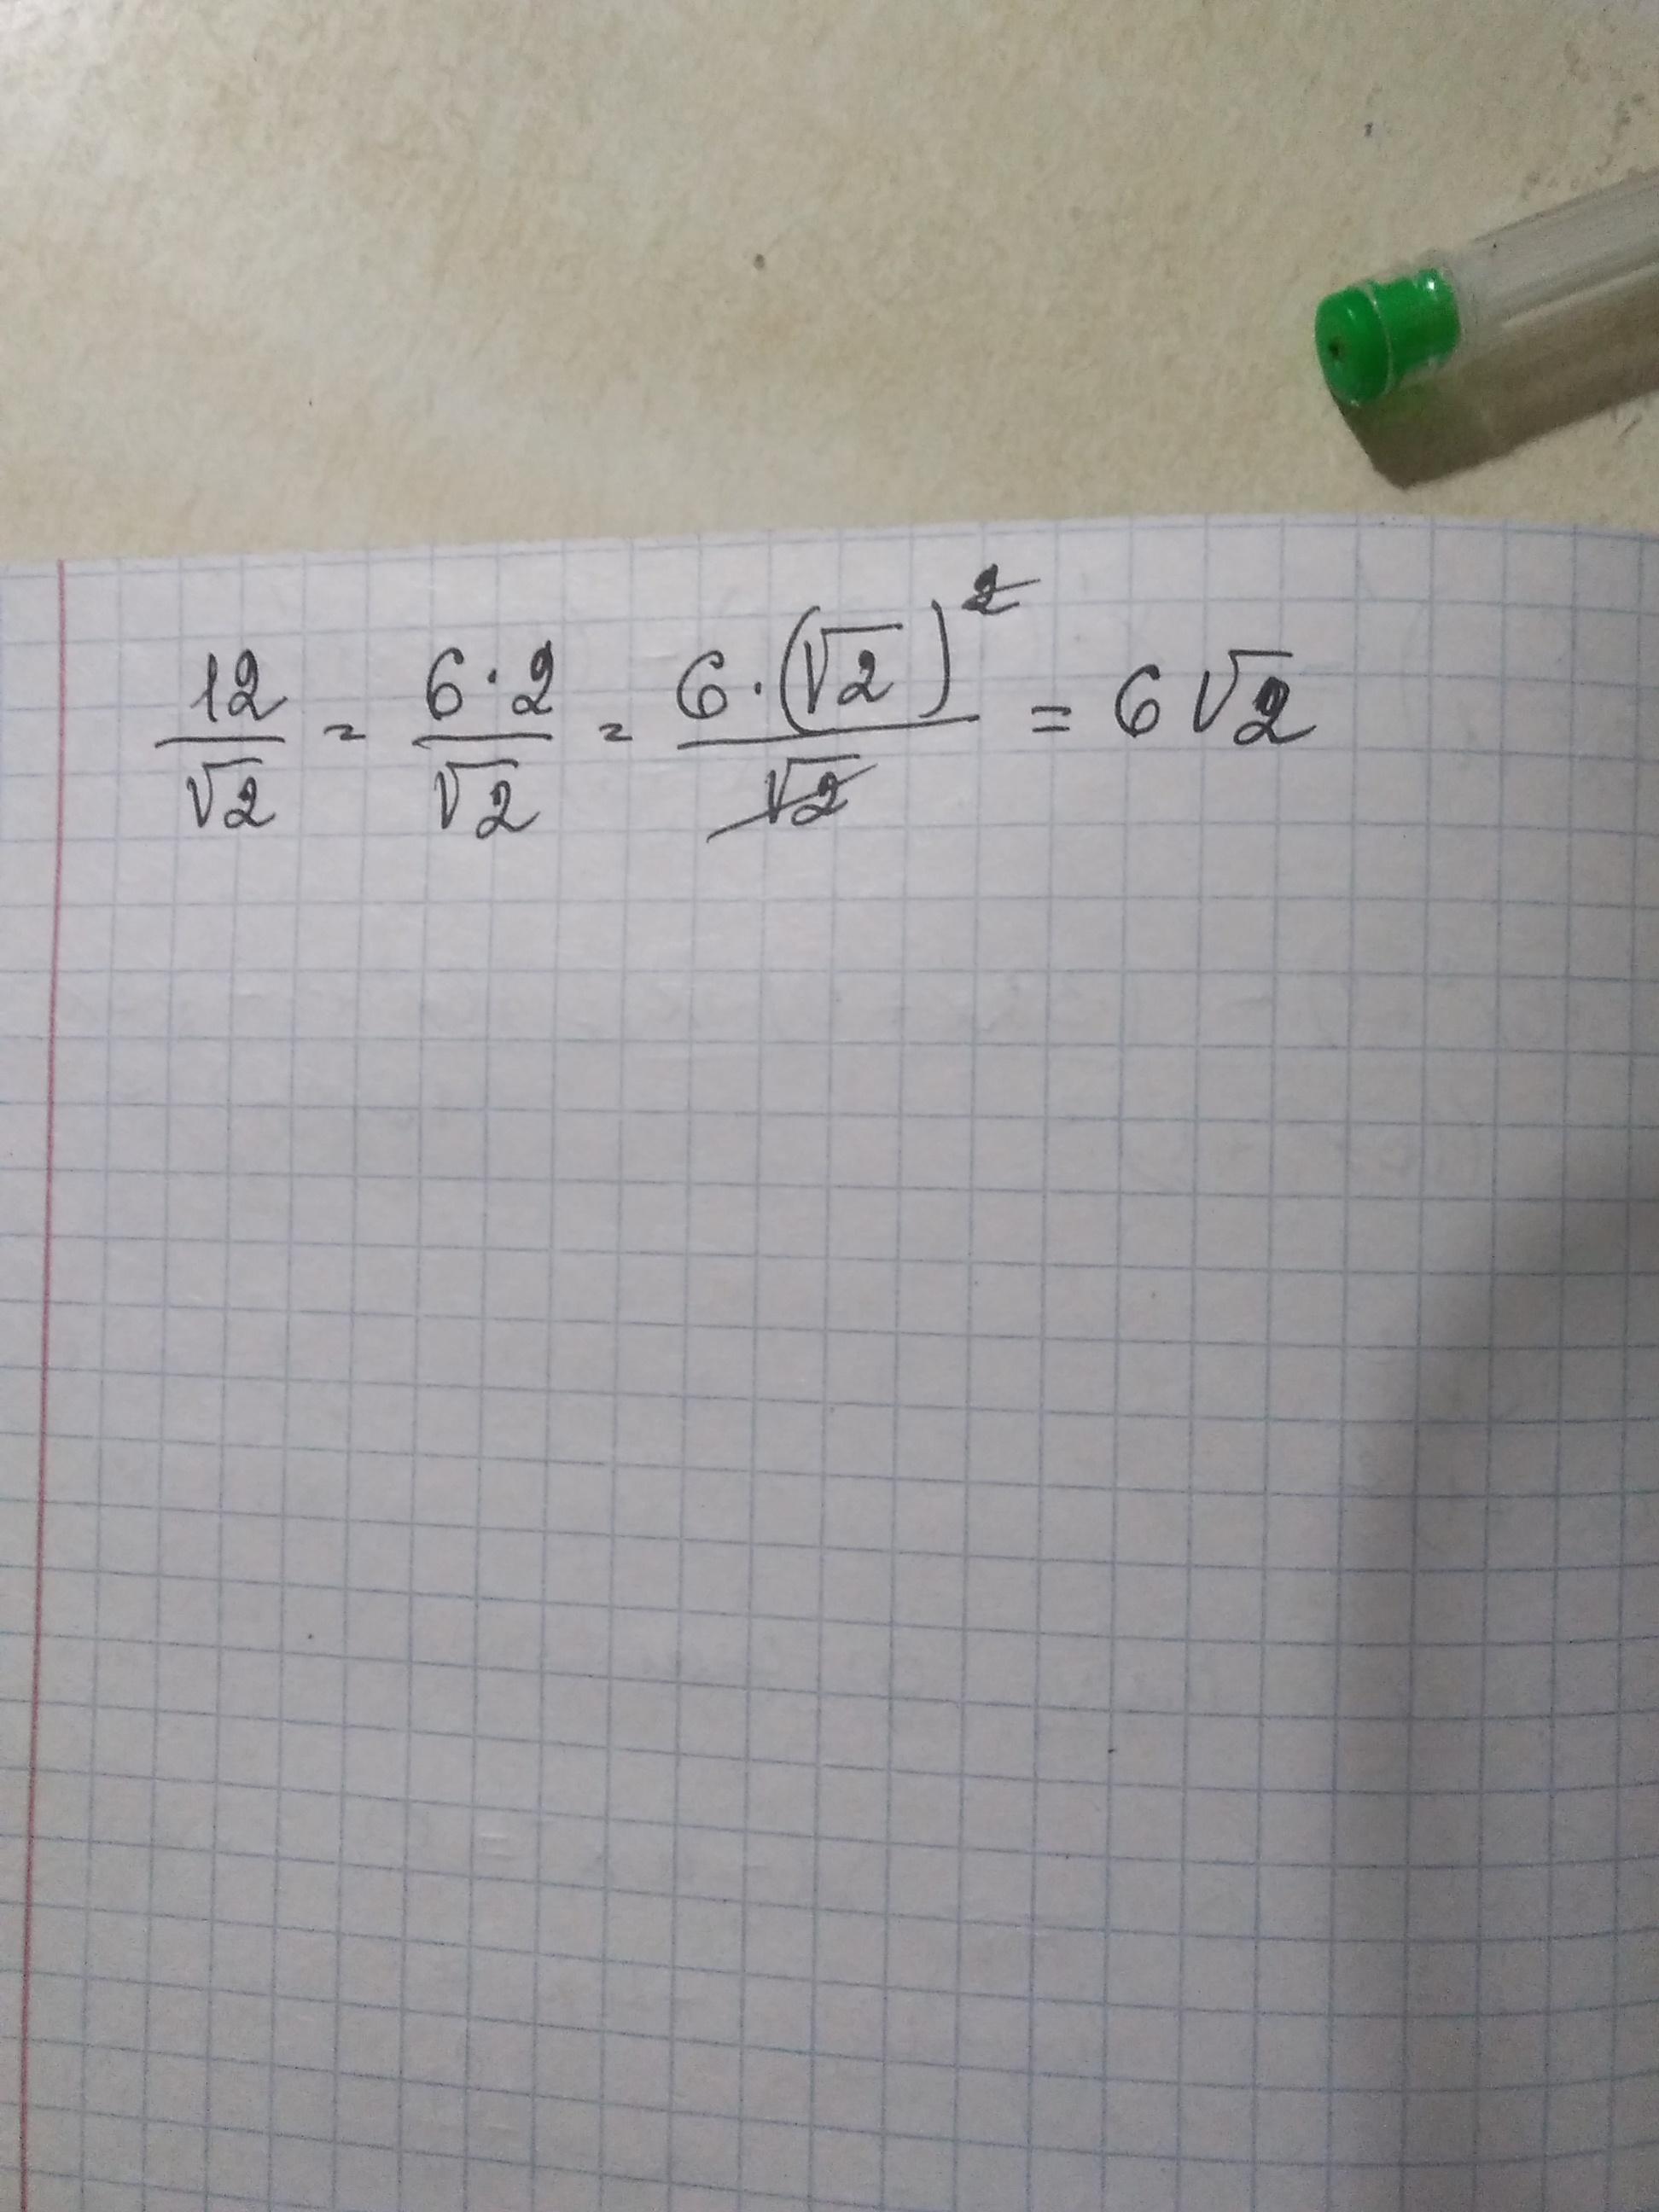 12/√2 = 6·2/√2 = 6·(√2)²/√2 = 6√2